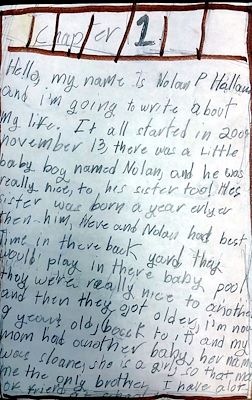 Chapter 1
Hello, my name Is Nolan P
and i'm going to write about
My life. It all started in
november 13 there was a Little
baby boy named Nolan, and he was
really nice, to, his sister too!
sister was born a year erlyer
then-him, and Nolan had best
time in there back yard they
would play in there baby pool
they were really nice to another
and then they got older, i'm now
9 years old, back to it, and my
mom had another baby, her name
was sloane, she is a girl so that
me the only brother I have alot
or friend at school